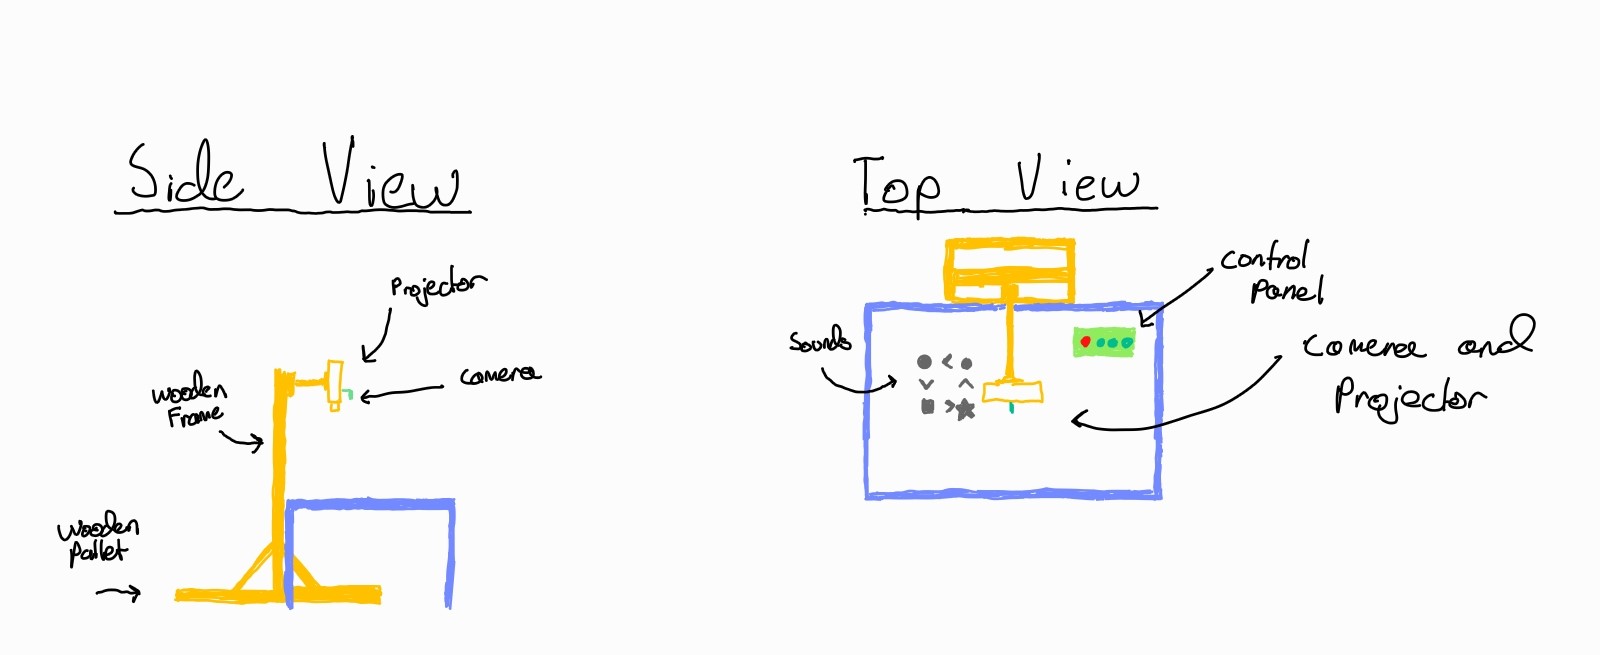 Side View
Projector
camera
wooden
Frame
wooden
pallet
Top View
control
panel
Sounds
camera and
Projector